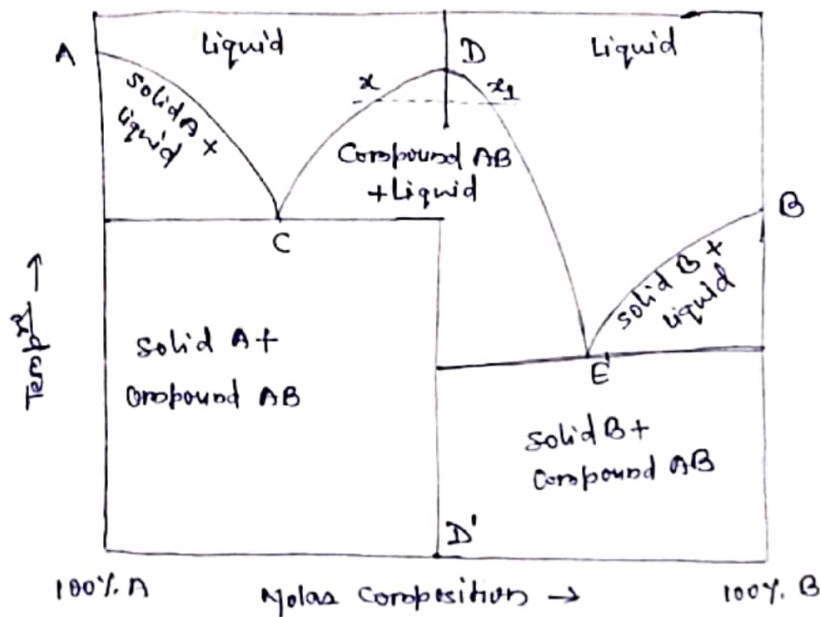 A
Liquid
D
Liquid
x
x1
Solid A +
liquid
Compound AB
+ Liquid
C
B
Solid B +
liquid
Temp
Solid A +
Compound AB
E
Solid B +
Compound AB
D'
100% A
Molar Composition →
100% B